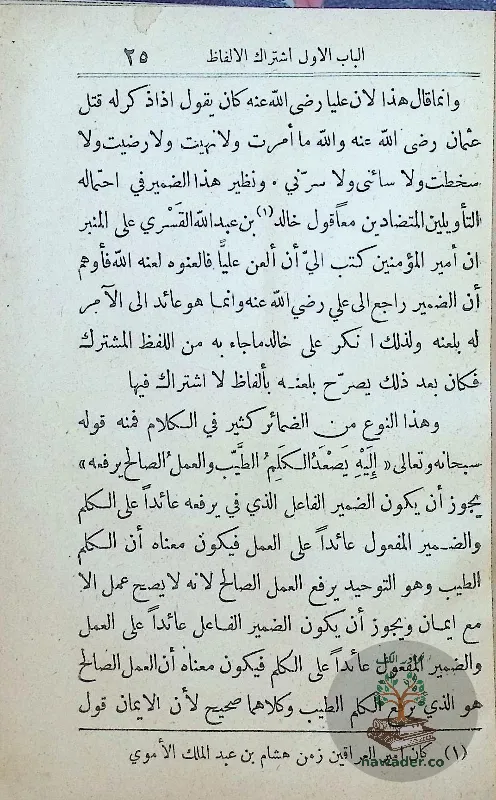 الباب الاول اشتراك الالفاظ ٢٥
وانماقال هذا لان عليا رضى الله عنه كان يقول اذاذكر له قتل
عثمان رضى الله عنه والله ما أمرت ولا نهيت ولا رضيت ولا
سخطت ولا سائنى ولا سرّني . ونظير هذا الضمير في احتماله
التأويلين المتضادين معاً قول خالد (١) بن عبد الله القَسْري على المنبر
ان أمير المؤمنين كتب اليّ أن ألعن علياً فالعنوه لعنه الله فأوهم
أن الضمير راجع الى علي رضي الله عنه وانما هو عائد الى الآمر
له بلعنه ولذلك ا نكر على خالد ما جاء به من اللفظ المشترك
فكان بعد ذلك يصرّح بلعنه بألفاظ لا اشتراك فيها
وهذا النوع من الضمائر كثير في الكلام فمنه قوله
سبحانه وتعالى « إِلَيْهِ يَصْعَدُ الكَلِمُ الطَّيِّب والعملُ الصالح يرفعه »
يجوز أن يكون الضمير الفاعل الذي في يرفعه عائداً على الكلم
والضمير المفعول عائداً على العمل فيكون معناه أن الكلم
الطيب وهو التوحيد يرفع العمل الصالح لانه لا يصح عمل الا
مع ايمان ويجوز أن يكون الضمير الفاعل عائداً على العمل
والضمير المفعول عائداً على الكلم فيكون معناه أن العمل الصالح
هو الذي الكلم الطيب وكلاهما صحيح لأن الايمان قول
(١) كان أمير العراقين زمن هشام بن عبد الملك الأموي
nawader.co